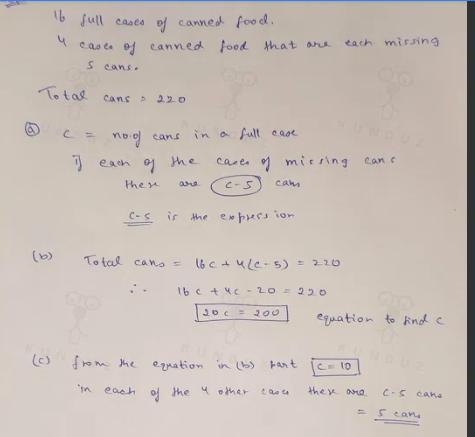 16 full cases of canned food.
4 cases of canned food that are each missing
5 cans.
Total cans = 220
(a) C = no of cans in a full case
if each of the cases of missing cans
there are C-5 cans
C-5 is the expression
(b) Total cans = 16c + 4(c-5) = 220
∴ 16c + 4c - 20 = 220
20c = 200 equation to find c
(c) from the equation in (b) part C = 10
in each of the 4 other cases there are C-5 cans
= 5 cans